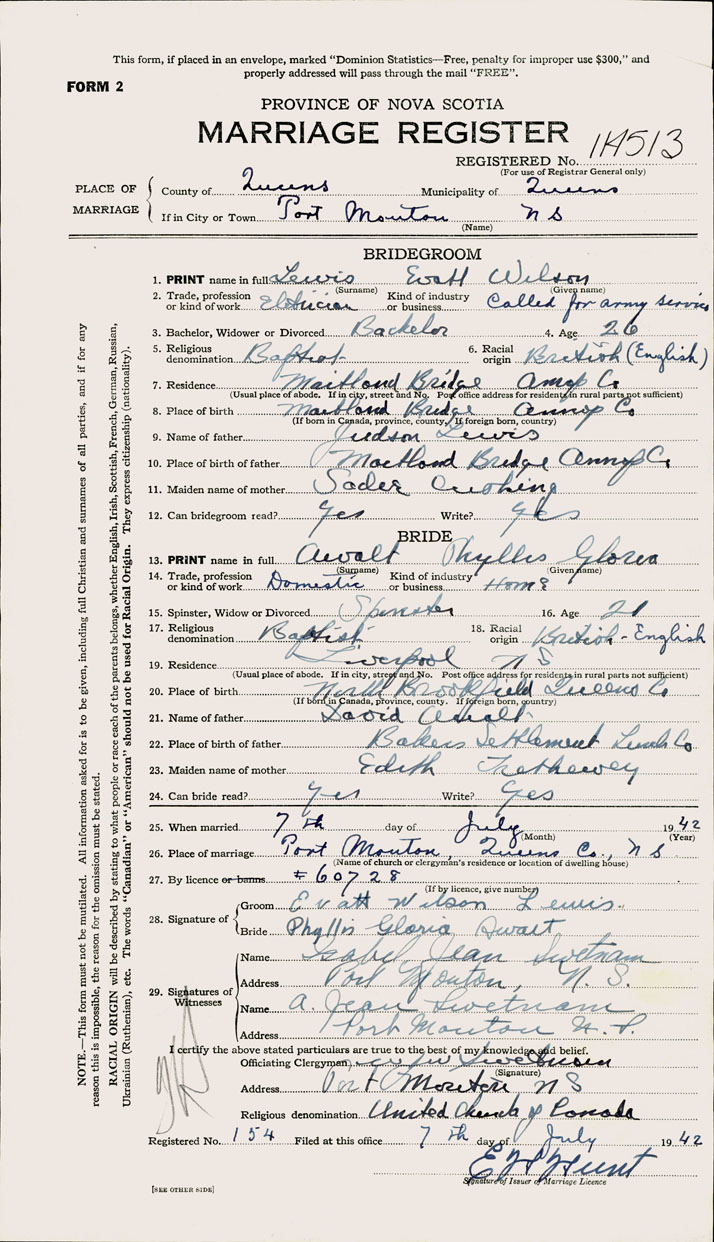 This form, if placed in an envelope, marked "Dominion Statistics—Free, penalty for improper use $300," and
properly addressed will pass through the mail "FREE".
FORM 2
PROVINCE OF NOVA SCOTIA
MARRIAGE REGISTER
REGISTERED No. 1H513
(For use of Registrar General only)
PLACE OF MARRIAGE
County of Queens Municipality of Queens
If in City or Town Port Mouton N S
(Name)
BRIDEGROOM
1. PRINT name in full Lewis Evatt Wilson
(Surname) (Given name)
2. Trade, profession or kind of work Kind of industry or business Called for army service
3. Bachelor, Widower or Divorced Bachelor 4. Age 26
5. Religious denomination Baptist 6. Racial origin British (English)
7. Residence Maitland Bridge Annap Co
(Usual place of abode. If in city, street and No. Post office address for residents in rural parts not sufficient)
8. Place of birth Maitland Bridge Annap Co
(If born in Canada, province, county. If foreign born, country)
9. Name of father Judson Lewis
10. Place of birth of father Maitland Bridge Annap Co
11. Maiden name of mother Sadee Cushing
12. Can bridegroom read? Yes Write? Yes
BRIDE
13. PRINT name in full Awalt Phyllis Gloria
(Surname) (Given name)
14. Trade, profession or kind of work Domestic Kind of industry or business Home
15. Spinster, Widow or Divorced Spinster 16. Age 21
17. Religious denomination Baptist 18. Racial origin British - English
19. Residence Liverpool N S
(Usual place of abode. If in city, street and No. Post office address for residents in rural parts not sufficient)
20. Place of birth North Brookfield Queens Co
(If born in Canada, province, county. If foreign born, country)
21. Name of father David Awalt
22. Place of birth of father Bakers Settlement Lunb Co
23. Maiden name of mother Edith Trethewey
24. Can bride read? Yes Write? Yes
25. When married 7th day of July 1942
(Month) (Year)
26. Place of marriage Port Mouton, Queens Co., N S
(Name of church or clergyman's residence or location of dwelling house)
27. By licence or banns # 60728
(If by licence, give number)
28. Signature of
Groom Evatt Wilson Lewis.
Bride Phyllis Gloria Awalt
29. Signatures of Witnesses
Name Isabel Jean Swetnam
Address Port Mouton, N. S.
Name A. Jean Swetnam
Address Port Mouton N. S.
I certify the above stated particulars are true to the best of my knowledge and belief.
Officiating Clergyman Swetnam
(Signature)
Address Port Mouton N S
Religious denomination United Church of Canada
Registered No. 154 Filed at this office 7th day of July 1942
E H Hunt
Signature of Issuer of Marriage Licence
[SEE OTHER SIDE]
NOTE.—This form must not be mutilated. All information asked for is to be given, including full Christian and surnames of all parties, and if for any
reason this is impossible, the reason for the omission must be stated.
RACIAL ORIGIN will be described by stating to what people or race each of the parents belongs, whether English, Irish, Scottish, French, German, Russian,
Ukrainian (Ruthenian), etc. The words "Canadian" or "American" should not be used for Racial Origin. They express citizenship (nationality).